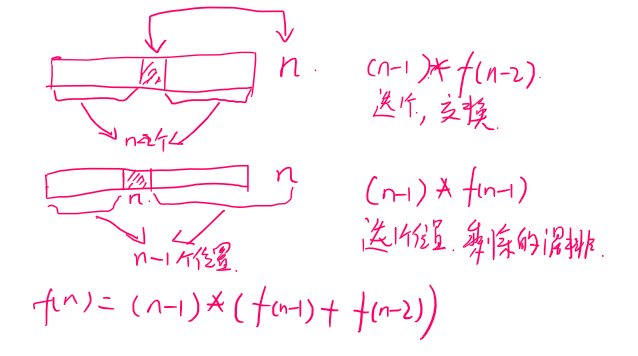 n.
(n-1)*f(n-2).
选个,交换.
n-2个
n
n.
(n-1)*f(n-1)
选个位置.剩余的混排.
n-1个位置.
f(n)=(n-1)*(f(n-1)+f(n-2))